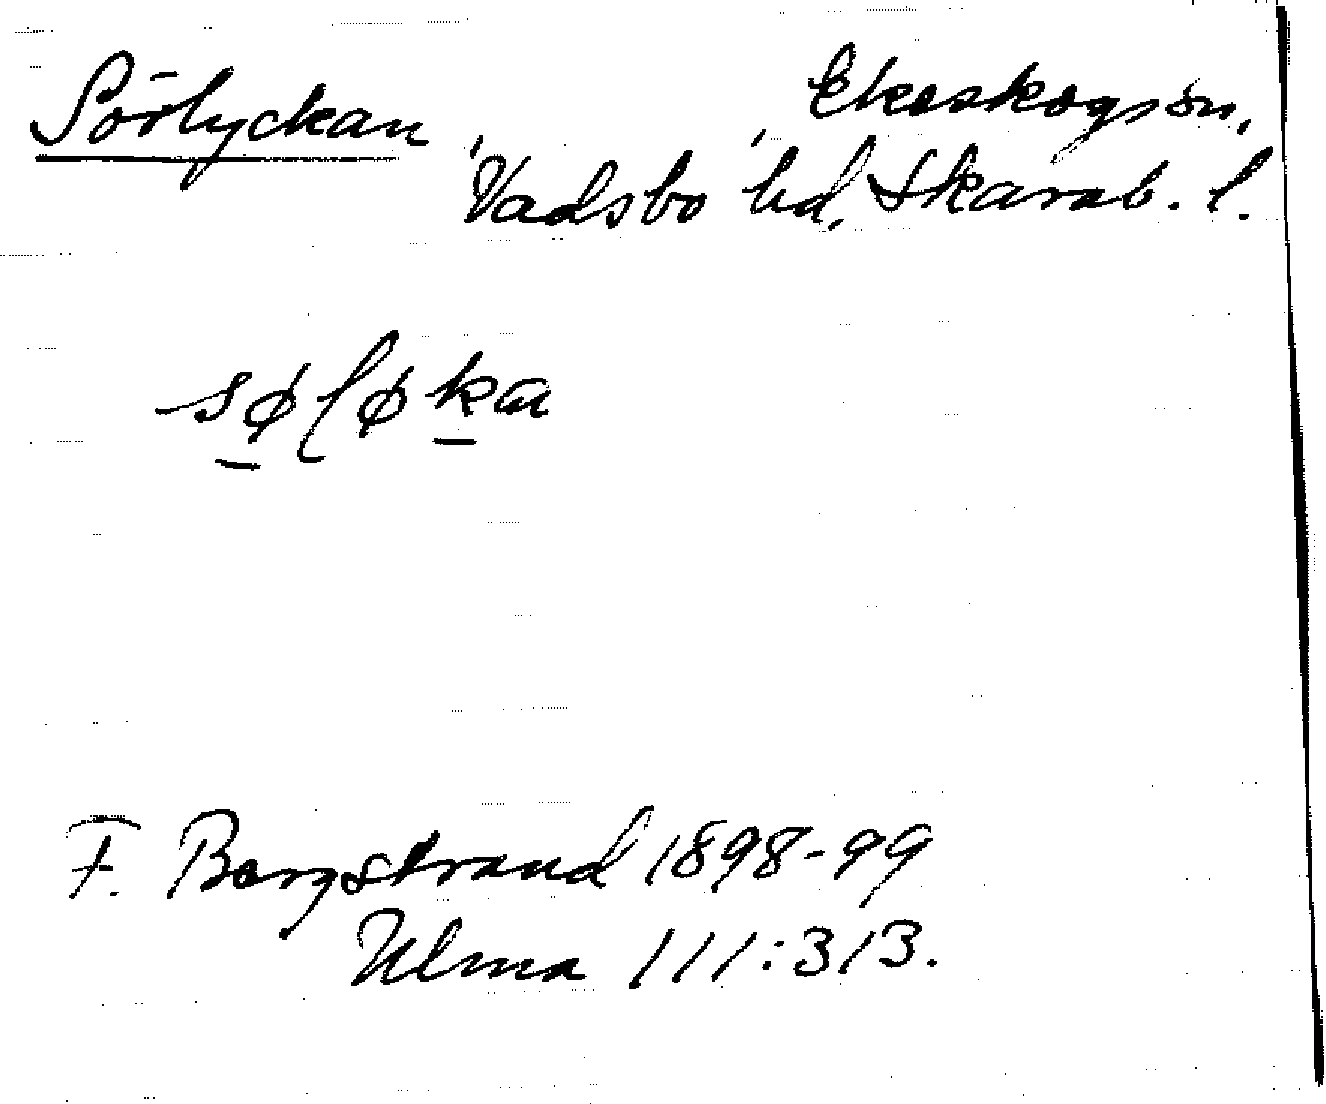 Sörlyckan Ekeskogs sn,
Vadsbo hd, Skarab. l.
søløka
F. Bergstrand 1898-99
Ulma 111:313.